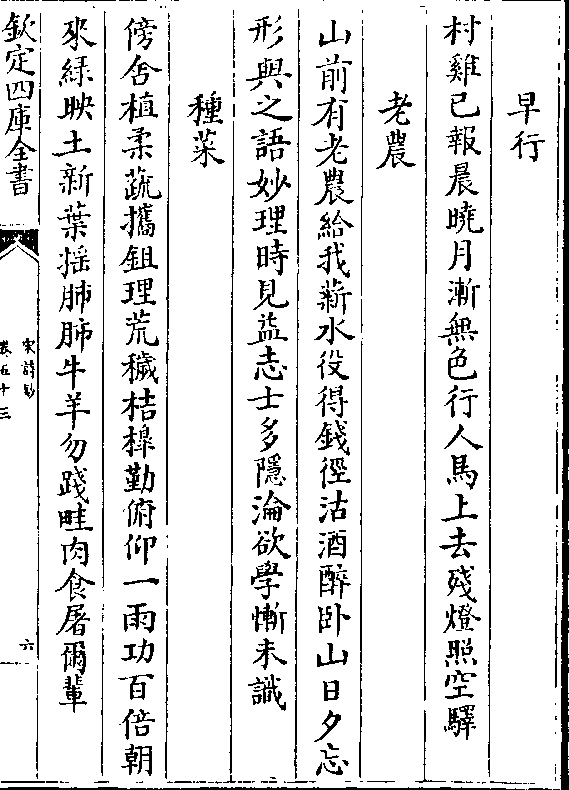 早行
村雞已報晨曉月漸無色行人馬上去殘燈照空驛
老農
山前有老農給我薪水役得錢徑沽酒醉卧山日夕忘
形與之語妙理時見益志士多隱淪欲學慚未識
種菜
傍舍植柔蔬攜鉏理荒穢桔橰勤俯仰一雨功百倍朝
來綠映土新葉揺肺肺牛羊勿踐畦肉食屠爾輩
欽定四庫全書
宋詩鈔
卷五十三
六